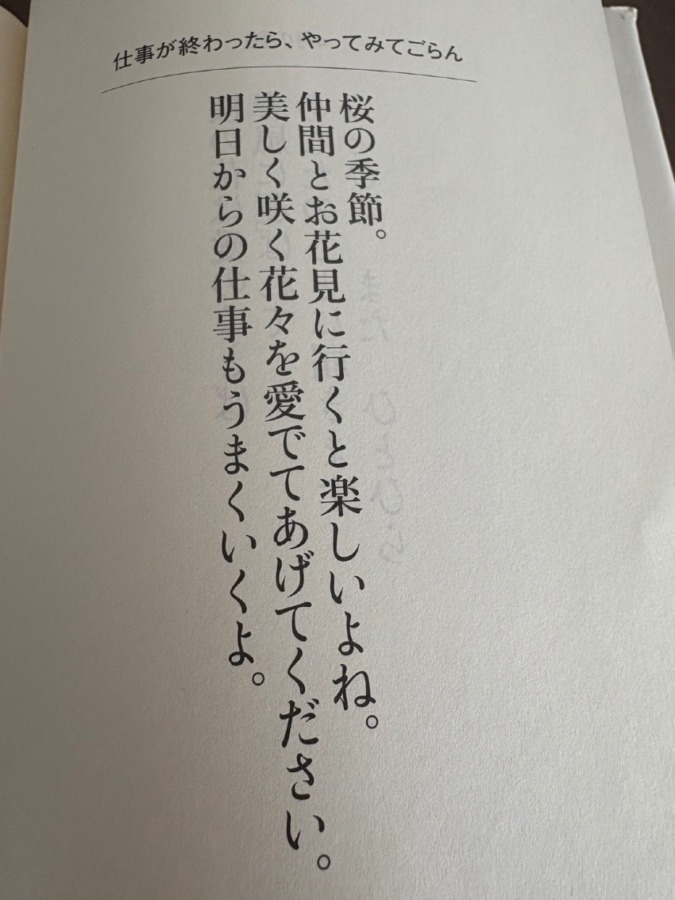 仕事が終わったら、やってみてごらん
桜の季節。
仲間とお花見に行くと楽しいよね。
美しく咲く花々を愛でてあげてください。
明日からの仕事もうまくいくよ。